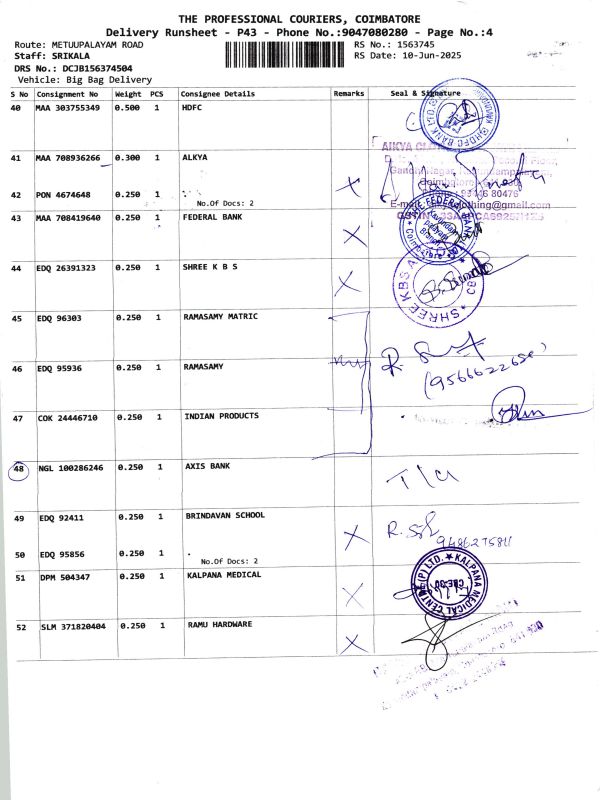 THE PROFESSIONAL COURIERS, COIMBATORE
Delivery Runsheet - P43 - Phone No.:9047080280 - Page No.:4
Route: METUUPALAYAM ROAD RS No.: 1563745
Staff: SRIKALA RS Date: 10-Jun-2025
DRS No.: DCJB156374504
Vehicle: Big Bag Delivery
S No Consignment No Weight PCS Consignee Details Remarks Seal & Signature
40 MAA 303755349 0.500 1 HDFC
41 MAA 708936266 0.300 1 ALKYA
42 PON 4674648 0.250 1
No.Of Docs: 2
43 MAA 708419640 0.250 1 FEDERAL BANK
44 EDQ 26391323 0.250 1 SHREE K B S
45 EDQ 96303 0.250 1 RAMASAMY MATRIC
46 EDQ 95936 0.250 1 RAMASAMY
(9566622650)
47 COK 24446710 0.250 1 INDIAN PRODUCTS
48 NGL 100286246 0.250 1 AXIS BANK
49 EDQ 92411 0.250 1 BRINDAVAN SCHOOL
50 EDQ 95856 0.250 1
No.Of Docs: 2
51 DPM 504347 0.250 1 KALPANA MEDICAL
KALPANA MEDICAL CENTRE (P) LTD.
52 SLM 371820404 0.250 1 RAMU HARDWARE